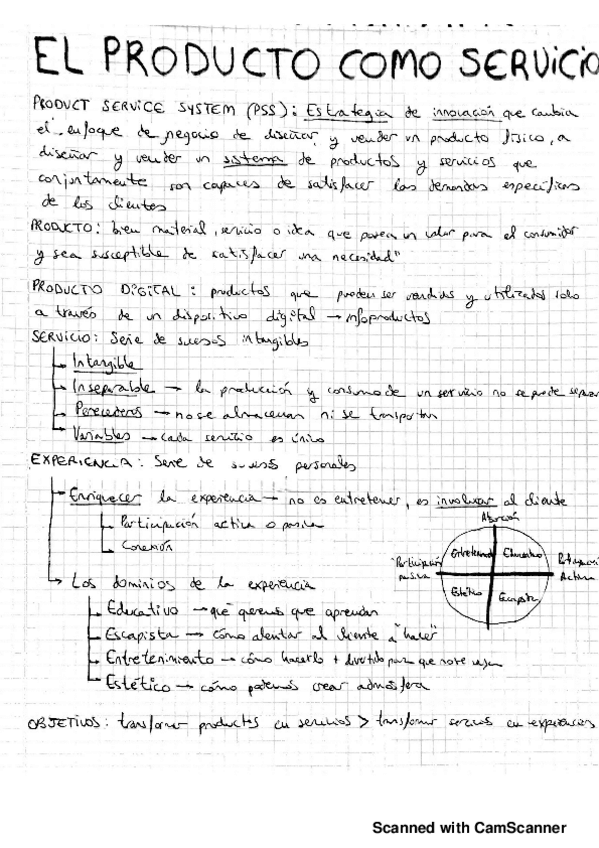 EL PRODUCTO COMO SERVICIO
PRODUCT SERVICE SYSTEM (PSS): Estrategia de innovación que cambia
el enfoque de negocio de diseñar y vender un producto físico, a
diseñar y vender un sistema de productos y servicios que
conjuntamente son capaces de satisfacer las demandas específicas
de los clientes
PRODUCTO: bien material, servicio o idea que posea un valor para el consumidor
y sea susceptible de satisfacer una necesidad"
PRODUCTO DIGITAL: productos que pueden ser vendidos y utilizados solo
a través de un dispositivo digital → infoproductos
SERVICIO: Serie de sucesos intangibles
Intangible
Inseparable → la producción y consumo de un servicio no se puede separar
Perecederos → no se almacenan ni se transportan
Variables → cada servicio es único
EXPERIENCIA: Serie de sucesos personales
Enriquecer la experiencia → no es entretener, es involucrar al cliente
Participación activa o pasiva
Conexión
Absorción
Entretenimiento Educativo
Participación pasiva
Activa
Estético Escapista
Los dominios de la experiencia
Educativo → qué queremos que aprendan
Escapista → cómo alentar al cliente a "hacer"
Entretenimiento → cómo hacerlo + divertido para que no se vayan
Estético → cómo podemos crear atmósfera
OBJETIVOS: transformar productos en servicios > transformar servicios en experiencias
Scanned with CamScanner